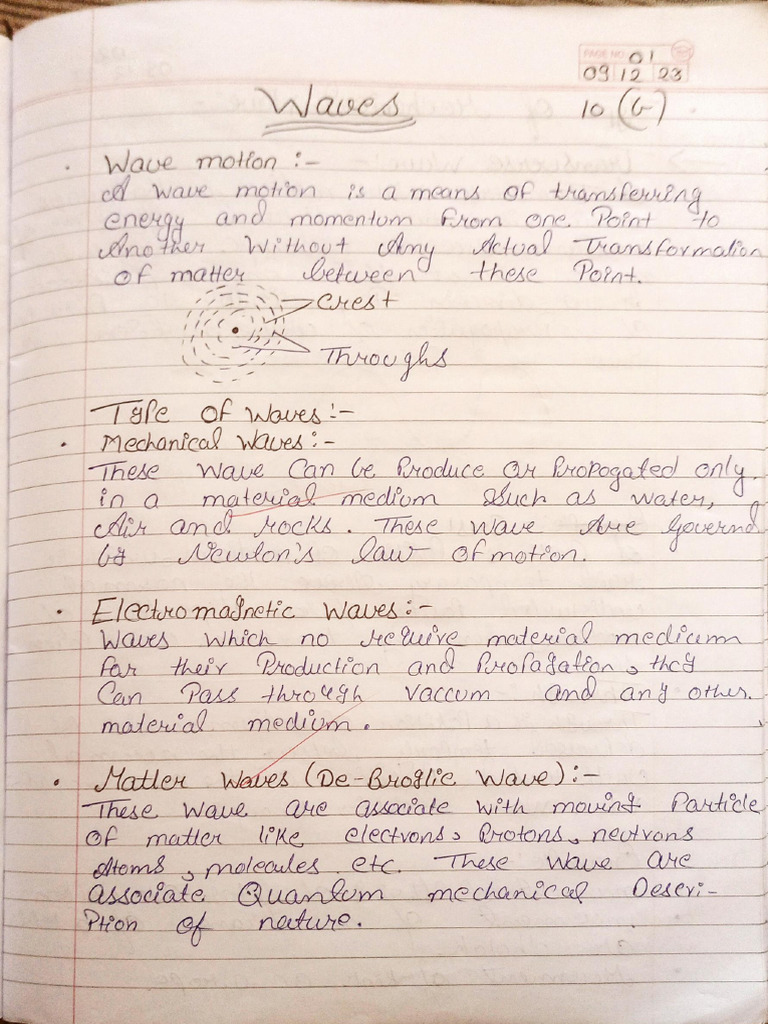 PAGE NO. 01
09 12 23
Waves 10 (b)
Wave motion :-
A wave motion is a means of transferring
energy and momentum From one Point to
Another Without Any Actual Transformation
Of matter between these Point.
Crest
Throughs
Type Of Waves :-
Mechanical Waves :-
These Wave Can be Produce Or Propogated only
in a material medium Such as water,
Air and rocks. These Wave Are Governd
by Newton's law Of motion.
Electromagnetic Waves :-
Waves which no require material medium
For their Production and Propagation, they
Can Pass through Vaccum and any other.
material medium.
Matter Waves (De-Broglie Wave) :-
These Wave are associate with moving Particle
Of matter like electrons, Protons, neutrons
Atoms, molecules etc. These Wave are
associate Quantum mechanical Descri-
Ption of nature.